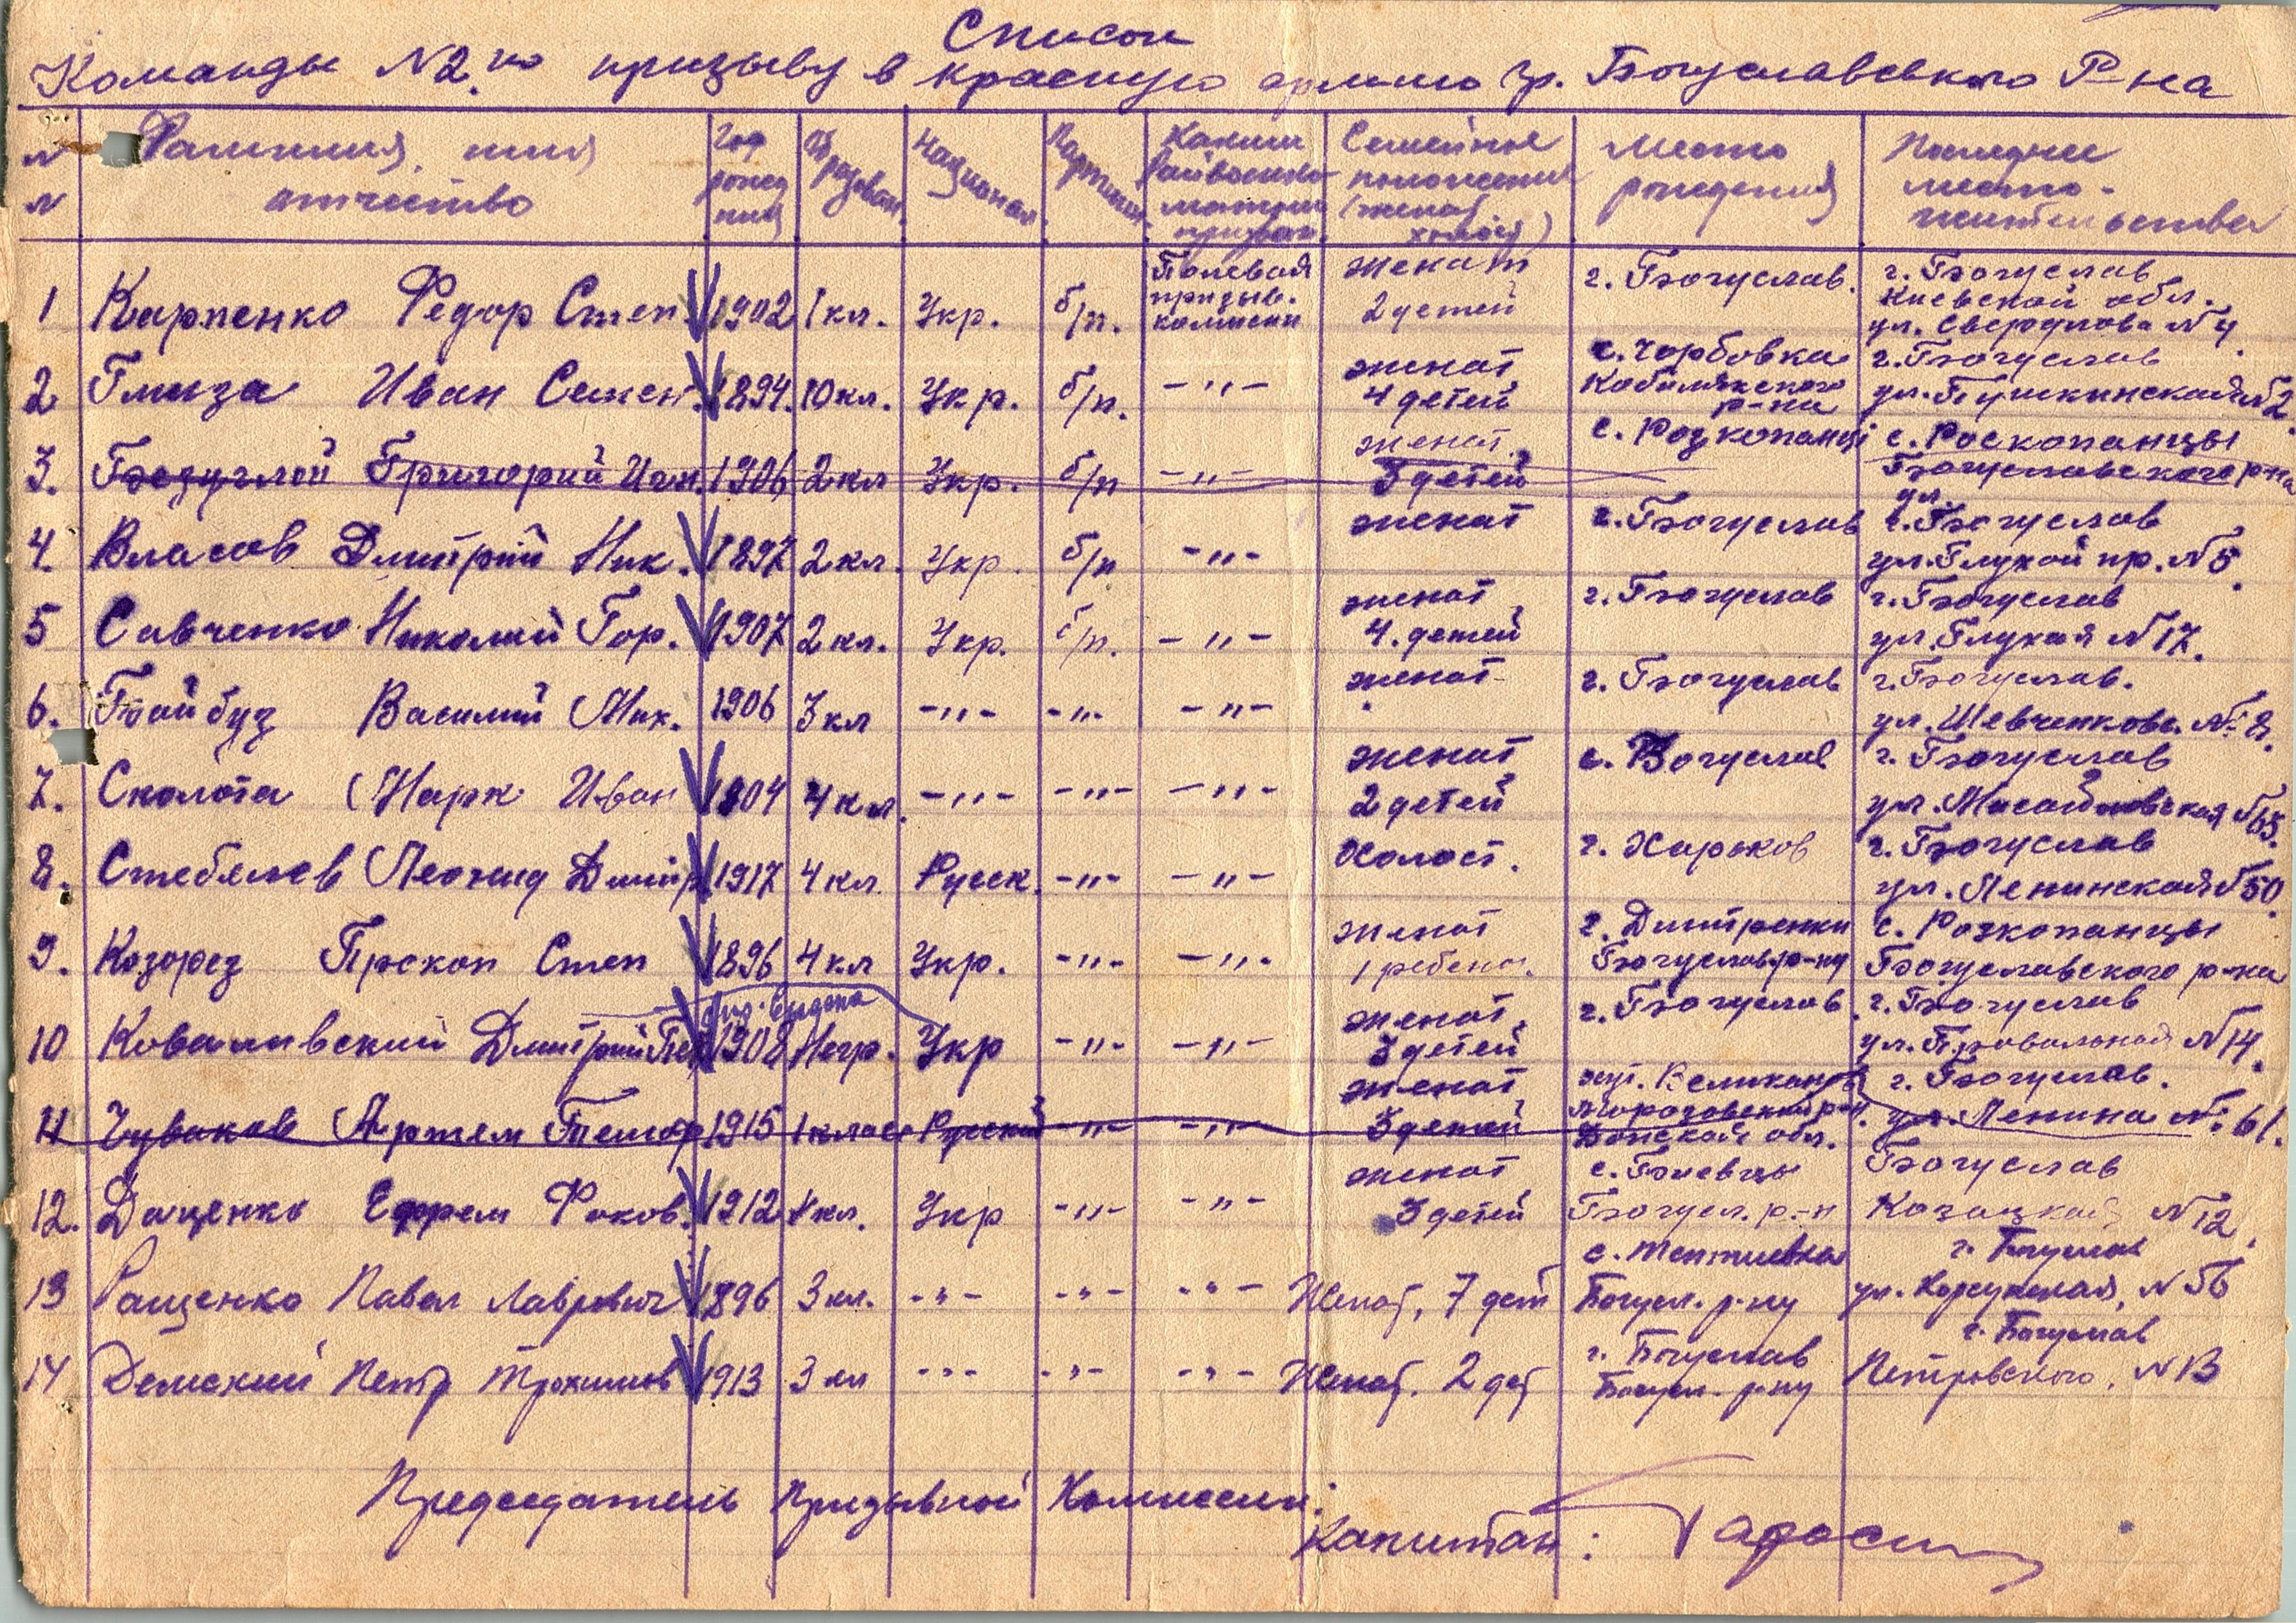 Список
Команды №2 по призыву в красную армию гр. Богуславського Р-на
№ Фамилия, имя отчество
Год рожд ния
Образован.
Национал.
Партийн.
Каким Райвоенко- матом призван.
Семейное положение (женат холост)
Место рождения
Последнее место- жительства
1 Карпенко Федор Степ. 1902 1 кл. Укр. б/п. Полевая призыв. комисси женат 2 детей г. Богуслав. г. Богуслав Киевской обл. ул. Свердлова №4
2 Глиза Иван Семен. 1894. 10 кл. Укр. б/п. -"- женат 4 детей с. Чорбовка Кобелякского р-на г. Богуслав ул. Пушкинская №2.
3. Безуглой Григорий Игн. 1906 2 кл Укр. б/п -"- женат, 3 детей с. Розкопанці с. Роскопанцы Богуславского р-на ул.
4. Власов Дмитрий Ник. 1897 2 кл. Укр. б/п -"- женат г. Богуслав г. Богуслав ул. Глухой пр. №5.
5 Савченко Николай Гор. 1907 2 кл. Укр. б/п. -"- женат, 4. детей г. Богуслав г. Богуслав ул. Глухая №17.
6. Байбуз Василий Мих. 1906 3 кл -"- -"- -"- женат г. Богуслав г. Богуслав. ул. Шевченково. №8.
7. Сколота Марк Иван 1904 4 кл. -"- -"- -"- женат 2 детей г. Богуслав г. Богуслав ул. №65.
8. Стеблев Леонид Дмитр 1917 4 кл. Русск. -"- -"- Холост. г. Харьков г. Богуслав ул. Ленинская №50.
9. Козорез Прокоп Степ 1896 4 кл Укр. -"- -"- женат 1 ребено. Дмитренки Богуслав. р-ну с. Розкопанцы Богуславского р-на
10 Коваливский Дмитрий 1908 Негр. Укр -"- -"- женат, 3 детей г. Богуслав г. Богуслав ул. №14.
11 Чуваков Артем 1915 1 класс Русский -"- -"- женат, 3 детей хут. Морозовский р-н. Донской обл. г. Богуслав. ул. Ленина №61.
12. Даценко Ефрем Фоков. 1912 4 кл. Укр -"- -"- женат 3 детей с. Биевцы Богусл. р-н Богуслав Козацкая №12.
13 Ращенко Павел Лаврович 1896 3 кл. -"- -"- -"- Женат, 7 дет с. Тептиевка Богусл. р-ну г. Богуслав ул. Корсунская, №56
14 Демский Петр Трохимов 1913 3 кл -"- -"- -"- Женат. 2 дет г. Богуслав Богусл. р-ну г. Богуслав Петровского, №13
Председатель Призывной Комиссии:
Капитан: